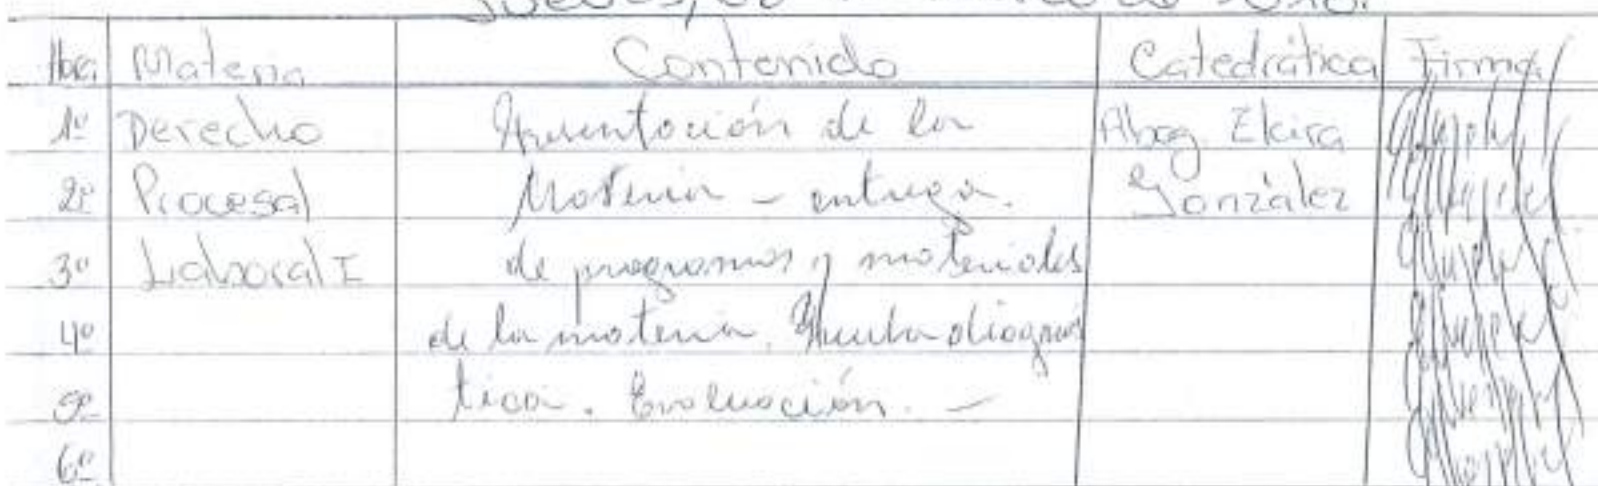 Jueves,
Hora Materia Contenido Catedrática Firma
1º Derecho Presentación de la Abog.
2º Procesal Materia - entrega. González
3º Laboral I de programas y materiales
4º de la materia. Prueba diagnós
5º tica. Evaluación. -
6º